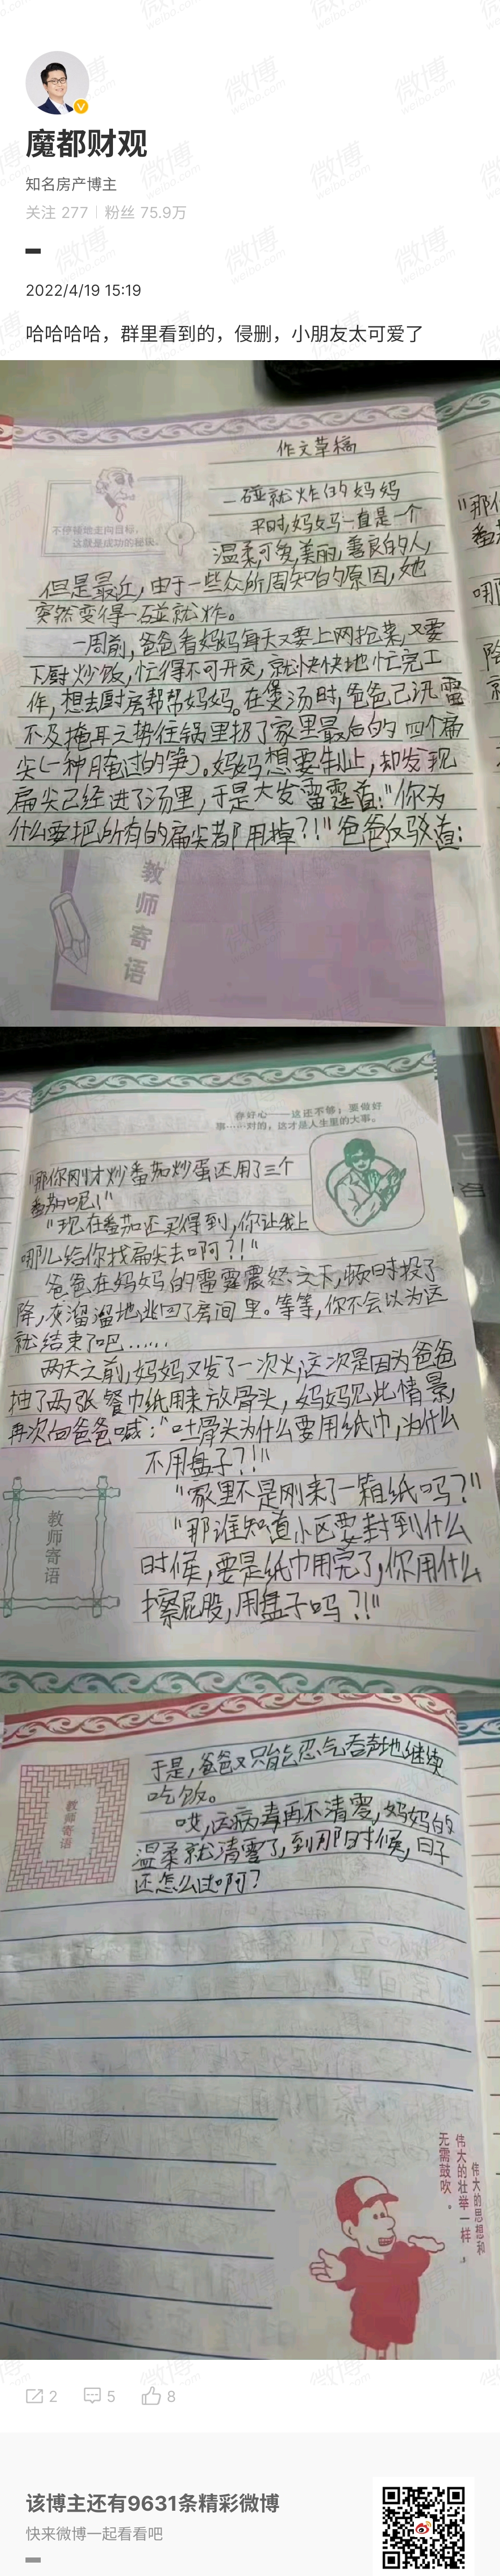 魔都财观
知名房产博主
关注 277 | 粉丝 75.9万
2022/4/19 15:19
哈哈哈哈，群里看到的，侵删，小朋友太可爱了
作文草稿
不停顿地走向目标，
这就是成功的秘诀。
一碰就炸的妈妈
平时，妈妈一直是一个
温柔可爱美丽，善良的人，
但是最近，由于一些众所周知的原因，她
突然变得一碰就炸。
一周前，爸爸看妈妈每天又要上网抢菜，又要
下厨炒饭，忙得不可开交，就快快地忙完工
作，想去厨房帮帮妈妈。在煲汤时，爸爸已迅雷
不及掩耳之势往锅里扔了家里最后的四个扁
尖(一种腌过的笋)。妈妈想要制止，却发现
扁尖已经进了汤里，于是大发雷霆道：“你为
什么要把所有的扁尖都用掉？！”爸爸反驳道：
教师寄语
存好心——这还不够；要做好
事……对的，这才是人生里的大事。
“那你刚才炒番茄炒蛋还用了三个
番茄呢！”
“现在番茄还买得到，你让我上
哪儿给你找扁尖去啊？！”
爸爸在妈妈的雷霆震怒之下，顿时投了
降，灰溜溜地逃回了房间里。等等，你不会以为这
就结束了吧……
两天之前，妈妈又发了一次火，这次是因为爸爸
抽了两张餐巾纸用来放骨头，妈妈见此情景，
再次向爸爸喊：“吐骨头为什么要用纸巾，为什么
不用盘子？！”
“家里不是刚来了一箱纸吗？”
“那谁知道小区要封到什么
时候，要是纸巾用完了，你用什么
擦屁股，用盘子吗？！”
教师寄语
于是，爸爸又只能忍气吞声地继续
吃饭。
哎，这病毒再不清零，妈妈的
温柔就清零了，到那时候，日子
还怎么过啊？
教师寄语
伟大的思想和
伟大的壮举一样，
无需鼓吹。
2 5 8
该博主还有9631条精彩微博
快来微博一起看看吧